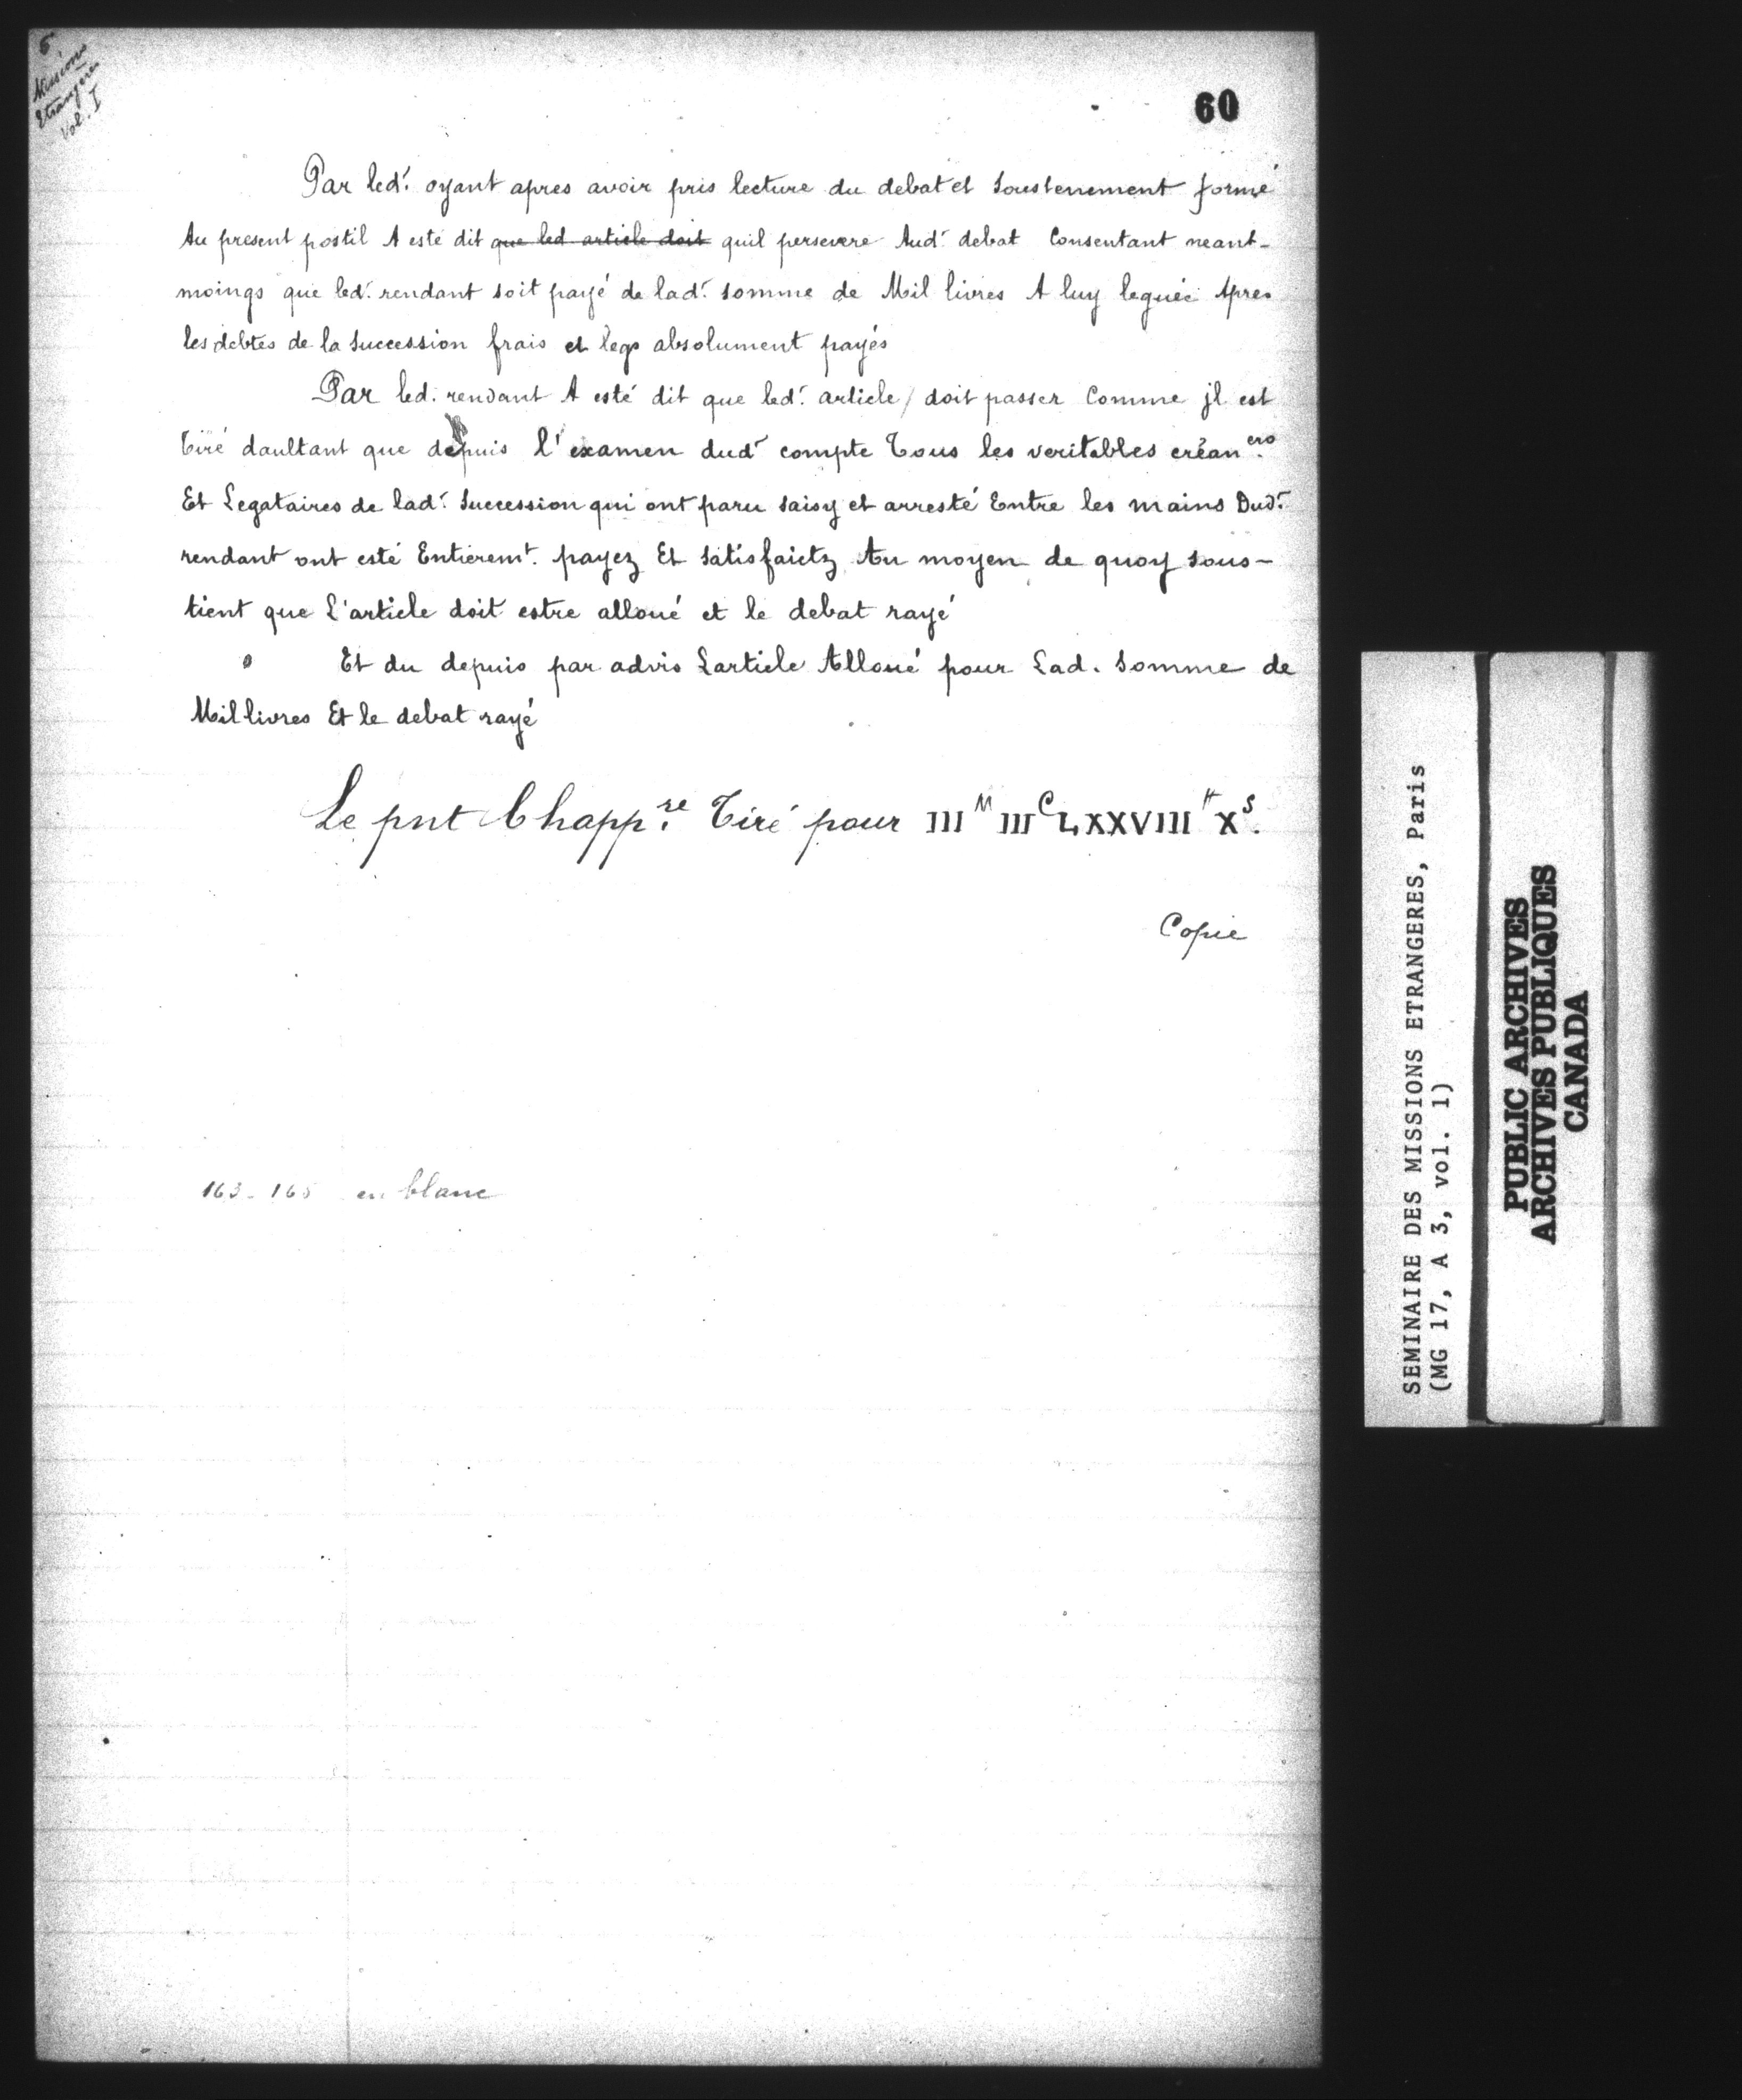 6
Missions
Etrangères
Vol. I
60
Par led.t oyant apres avoir pris lecture du debat et soustenement formé
Au present postil A esté dit que led article doit quil persevere Aud.t debat Consentant neant-
moings que led.t rendant soit payé de lad.t somme de Mil livres A luy leguée Apres
les debtes de la succession frais et legs absolument payés
Par led. rendant A esté dit que led.t article / doit passer Comme jl est
tiré daultant que depuis l'examen dud.t compte Tous les veritables créan.ers
Et Legataires de lad.t Succession qui ont paru saisy et arresté Entre les mains Dud.t
rendant ont esté Entierem.t payez Et satisfaictz Au moyen de quoy sous-
tient que L'article doit estre alloué et le debat rayé
Et du depuis par advis Larticle Alloué pour Lad. Somme de
Mil livres Et le debat rayé
Le pnt Chapp.re Tiré pour III M III C LXXVIII ₶ X S.
Copie
163-165 en blanc
SEMINAIRE DES MISSIONS ETRANGERES, Paris
(MG 17, A 3, vol. 1)
PUBLIC ARCHIVES
ARCHIVES PUBLIQUES
CANADA